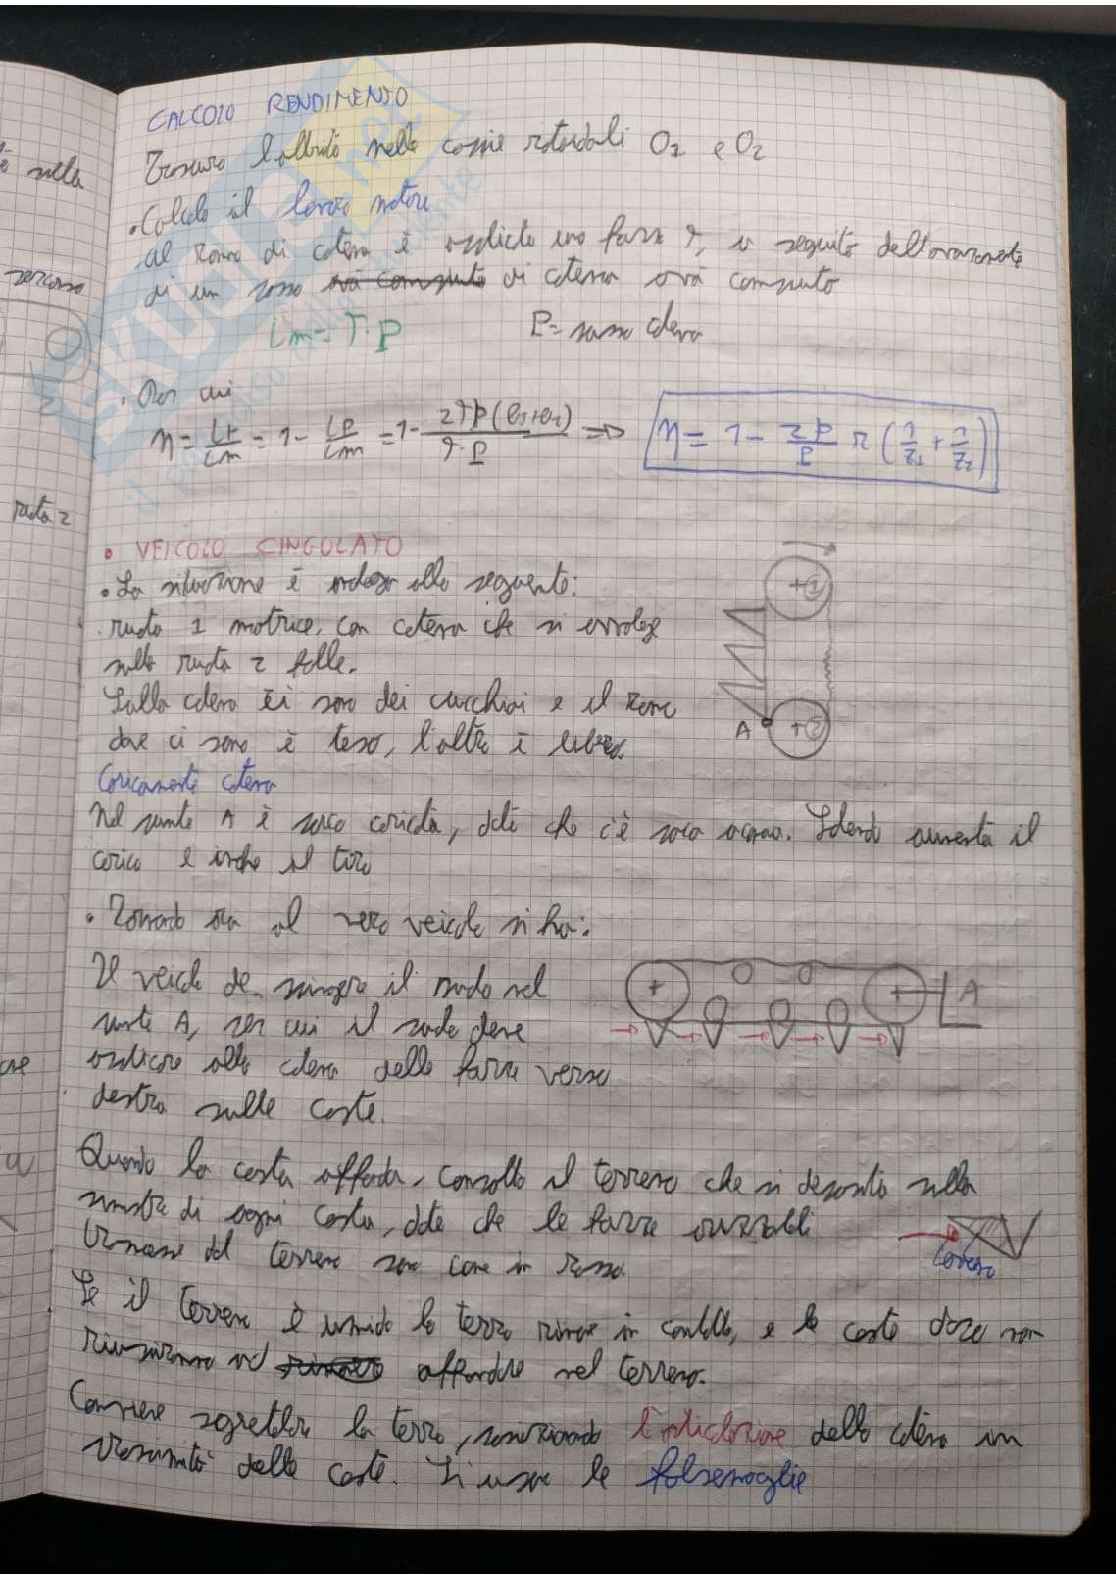 CALCOLO RENDIMENTO
Trascuro l'attrito nelle coppie rotoidali O1 e O2
• Calcolo il lavoro motore
al ramo di catena è applicata una forza T, in seguito dell'avanzamento
di un passo di catena avrà compiuto
Lm = T·P P = passo catena
• Per cui
η = Lr/Lm = 1 - Lp/Lm = 1 - /T·P ⇒ η = 1 - 2ρ/P π (1/z1 + 1/z2)
• VEICOLO CINGOLATO
• La situazione è analoga alla seguente:
ruota 1 motrice, con catena che si avvolge
sulla ruota 2 folle.
Sulla catena ci sono dei cucchiai e il ramo
dove ci sono è teso, l'altro è libero.
Caricamento catena
Nel punto A è poco caricata, dato che c'è poca acqua. Salendo aumenta il
carico e anche il tiro
• Tornando ora al vero veicolo si ha:
Il veicolo deve spingere il nel
punto A, per cui il suolo deve
applicare alla catena delle forze verso
destra sulle coste.
Quando la costa affonda, compatta il terreno che si deposita sulla
sinistra di ogni costa, dato che le forze orizzontali
trasmesse dal terreno sono come in rosso.
terreno
Se il terreno è umido la terra rimane in contatto, e le coste dopo non
riusciranno ad affondare nel terreno.
Conviene sgretolare la terra, l'articolazione della catena in
prossimità delle coste. Si usano le false maglie
A
1
2
A
ruota 2
sulla
percorso